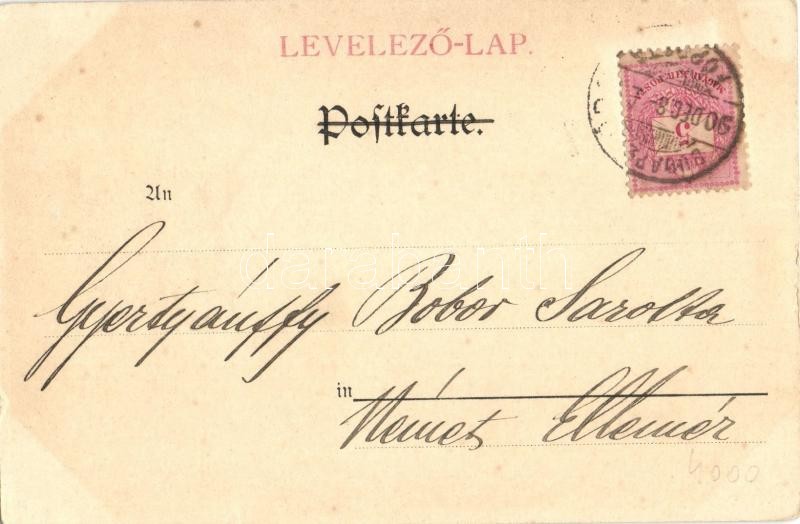 LEVELEZŐ-LAP.
Postkarte.
An
Gyertyánffy Bobor Sarolta
in
Német Ellemér
5
BUDAPEST
4000
darabanth